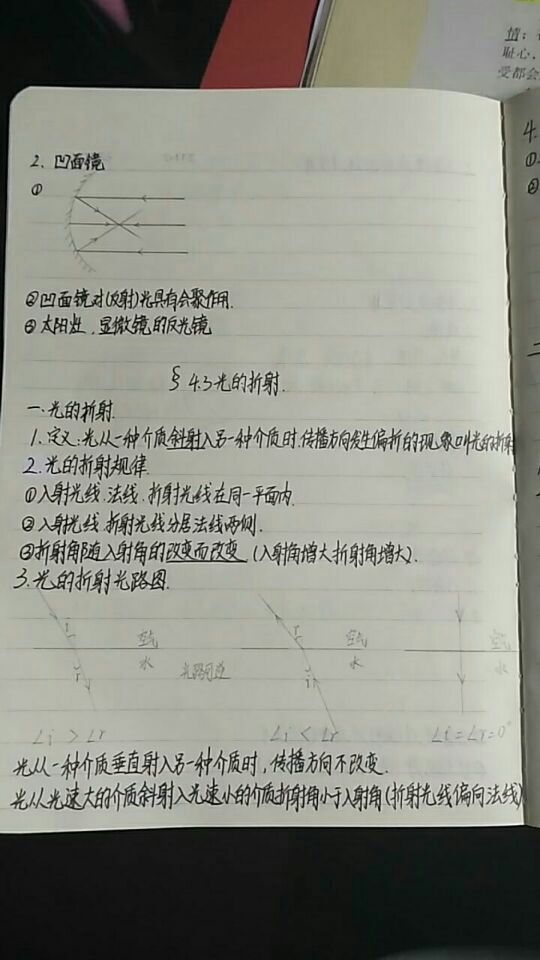 情：
耻心.
受都会
2. 凹面镜
①
②凹面镜对(反射)光具有会聚作用.
③太阳灶, 显微镜的反光镜
§ 4.3光的折射.
一.光的折射.
1. 定义:光从一种介质斜射入另一种介质时.传播方向发生偏折的现象叫光的折射
2.光的折射规律
①入射光线.法线.折射光线在同一平面内.
②入射光线.折射光线分居法线两侧.
③折射角随入射角的改变而改变 (入射角增大折射角增大).
3.光的折射光路图.
i 空气 r 空气 空气
r 水 光路可逆 i 水 水
∠i > ∠r ∠i < ∠r ∠i = ∠r = 0°
光从一种介质垂直射入另一种介质时, 传播方向不改变.
光从光速大的介质斜射入光速小的介质折射角小于入射角(折射光线偏向法线)
4.
①
②
二